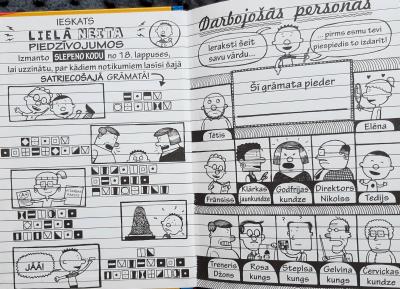 IESKATS
LIELĀ NEITA
PIEDZĪVOJUMOS
Izmanto SLEPENO KODU no 18. lappuses,
lai uzzinātu, par kādiem notikumiem lasīsi šajā
SATRIECOŠAJĀ GRĀMATĀ!
JĀĀ!
Darbojošās personas
Ieraksti šeit
savu vārdu...
...pirms esmu tevi
piespiedis to izdarīt!
Šī grāmata pieder
Tētis
Elēna
Fránsiss
Klárkas
jaunkundze
Godfrijas
kundze
Direktors
Nikolss
Tedijs
Treneris
Džons
Rosa
kungs
Steplsa
kungs
Gelvina
kungs
Červickas
kundze